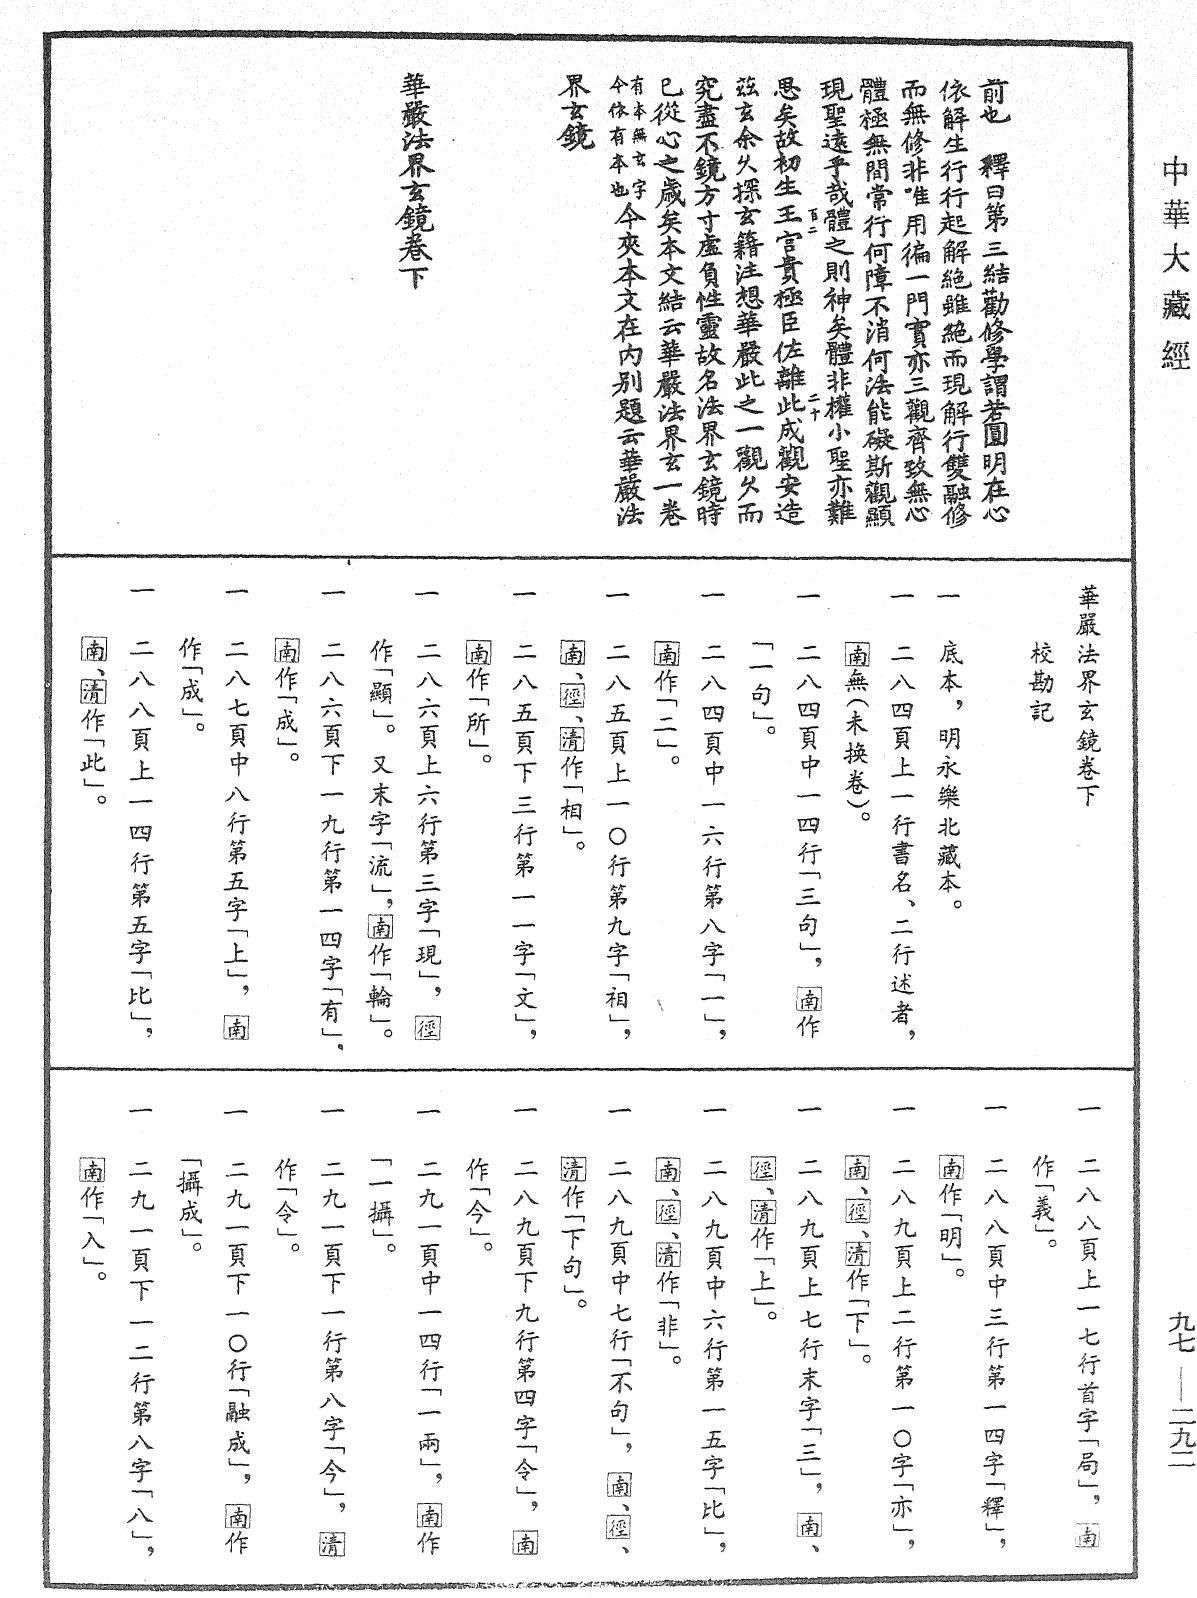 中華大藏經
前也　釋曰第三結勸修學謂若圓明在心
依解生行行起解絕雖絕而現解行雙融修
而無修非唯用徧一門實亦三觀齊致無心
體極無間常行何障不消何法能礙斯觀顯
現聖遠乎哉體之則神矣體非權小聖亦難
思矣故初生王宮貴極臣佐離此成觀安造
百二
二十
茲玄余久探玄籍注想華嚴此之一觀久而
究盡不鏡方寸虛負性靈故名法界玄鏡時
已從心之歲矣本文結云華嚴法界玄一卷
有本無玄字
今依有本也
今夾本文在內別題云華嚴法
界玄鏡
華嚴法界玄鏡卷下
華嚴法界玄鏡卷下
校勘記
一　底本，明永樂北藏本。
一　二八四頁上一行書名、二行述者，
南無（未換卷）。
一　二八四頁中一四行「三句」，南作
「一句」。
一　二八四頁中一六行第八字「一」，
南作「二」。
一　二八五頁上一〇行第九字「祖」，
南、徑、清作「相」。
一　二八五頁下三行第一一字「文」，
南作「所」。
一　二八六頁上六行第三字「現」，徑
作「顯」。又末字「流」，南作「輪」。
一　二八六頁下一九行第一四字「有」，
南作「成」。
一　二八七頁中八行第五字「上」，南
作「成」。
一　二八八頁上一四行第五字「比」，
南、清作「此」。
一　二八八頁上一七行首字「局」，南
作「義」。
一　二八八頁中三行第一四字「釋」，
南作「明」。
一　二八九頁上二行第一〇字「亦」，
南、徑、清作「下」。
一　二八九頁上七行末字「三」，南、
徑、清作「上」。
一　二八九頁中六行第一五字「比」，
南、徑、清作「非」。
一　二八九頁中七行「不句」，南、徑、
清作「下句」。
一　二八九頁下九行第四字「令」，南
作「今」。
一　二九一頁中一四行「一兩」，南作
「一攝」。
一　二九一頁下一行第八字「今」，清
作「令」。
一　二九一頁下一〇行「融成」，南作
「攝成」。
一　二九一頁下一二行第八字「八」，
南作「入」。
九七——二九二